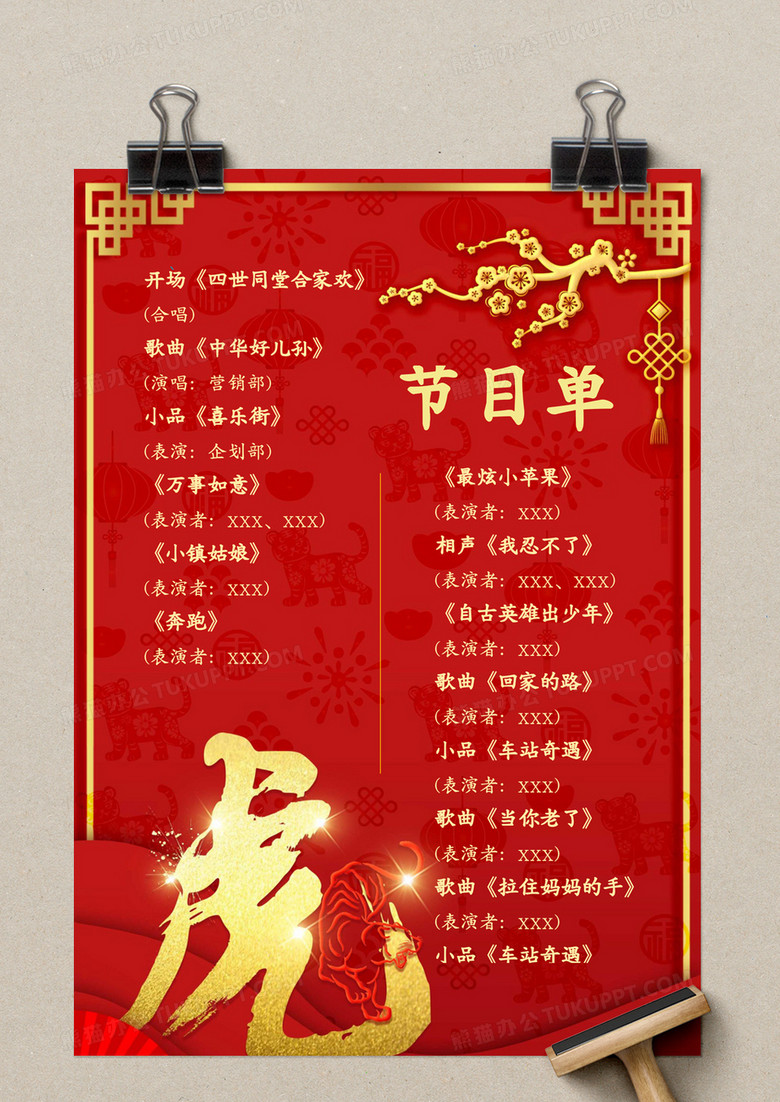 开场《四世同堂合家欢》
(合唱)
歌曲《中华好儿孙》
(演唱：营销部)
小品《喜乐街》
(表演：企划部)
《万事如意》
(表演者：xxx、xxx)
《小镇姑娘》
(表演者：xxx)
《奔跑》
(表演者：xxx)
节目单
《最炫小苹果》
(表演者：xxx)
相声《我忍不了》
(表演者：xxx、xxx)
《自古英雄出少年》
(表演者：xxx)
歌曲《回家的路》
(表演者：xxx)
小品《车站奇遇》
(表演者：xxx)
歌曲《当你老了》
(表演者：xxx)
歌曲《拉住妈妈的手》
(表演者：xxx)
小品《车站奇遇》
虎
熊猫办公 TUKUPPT.COM